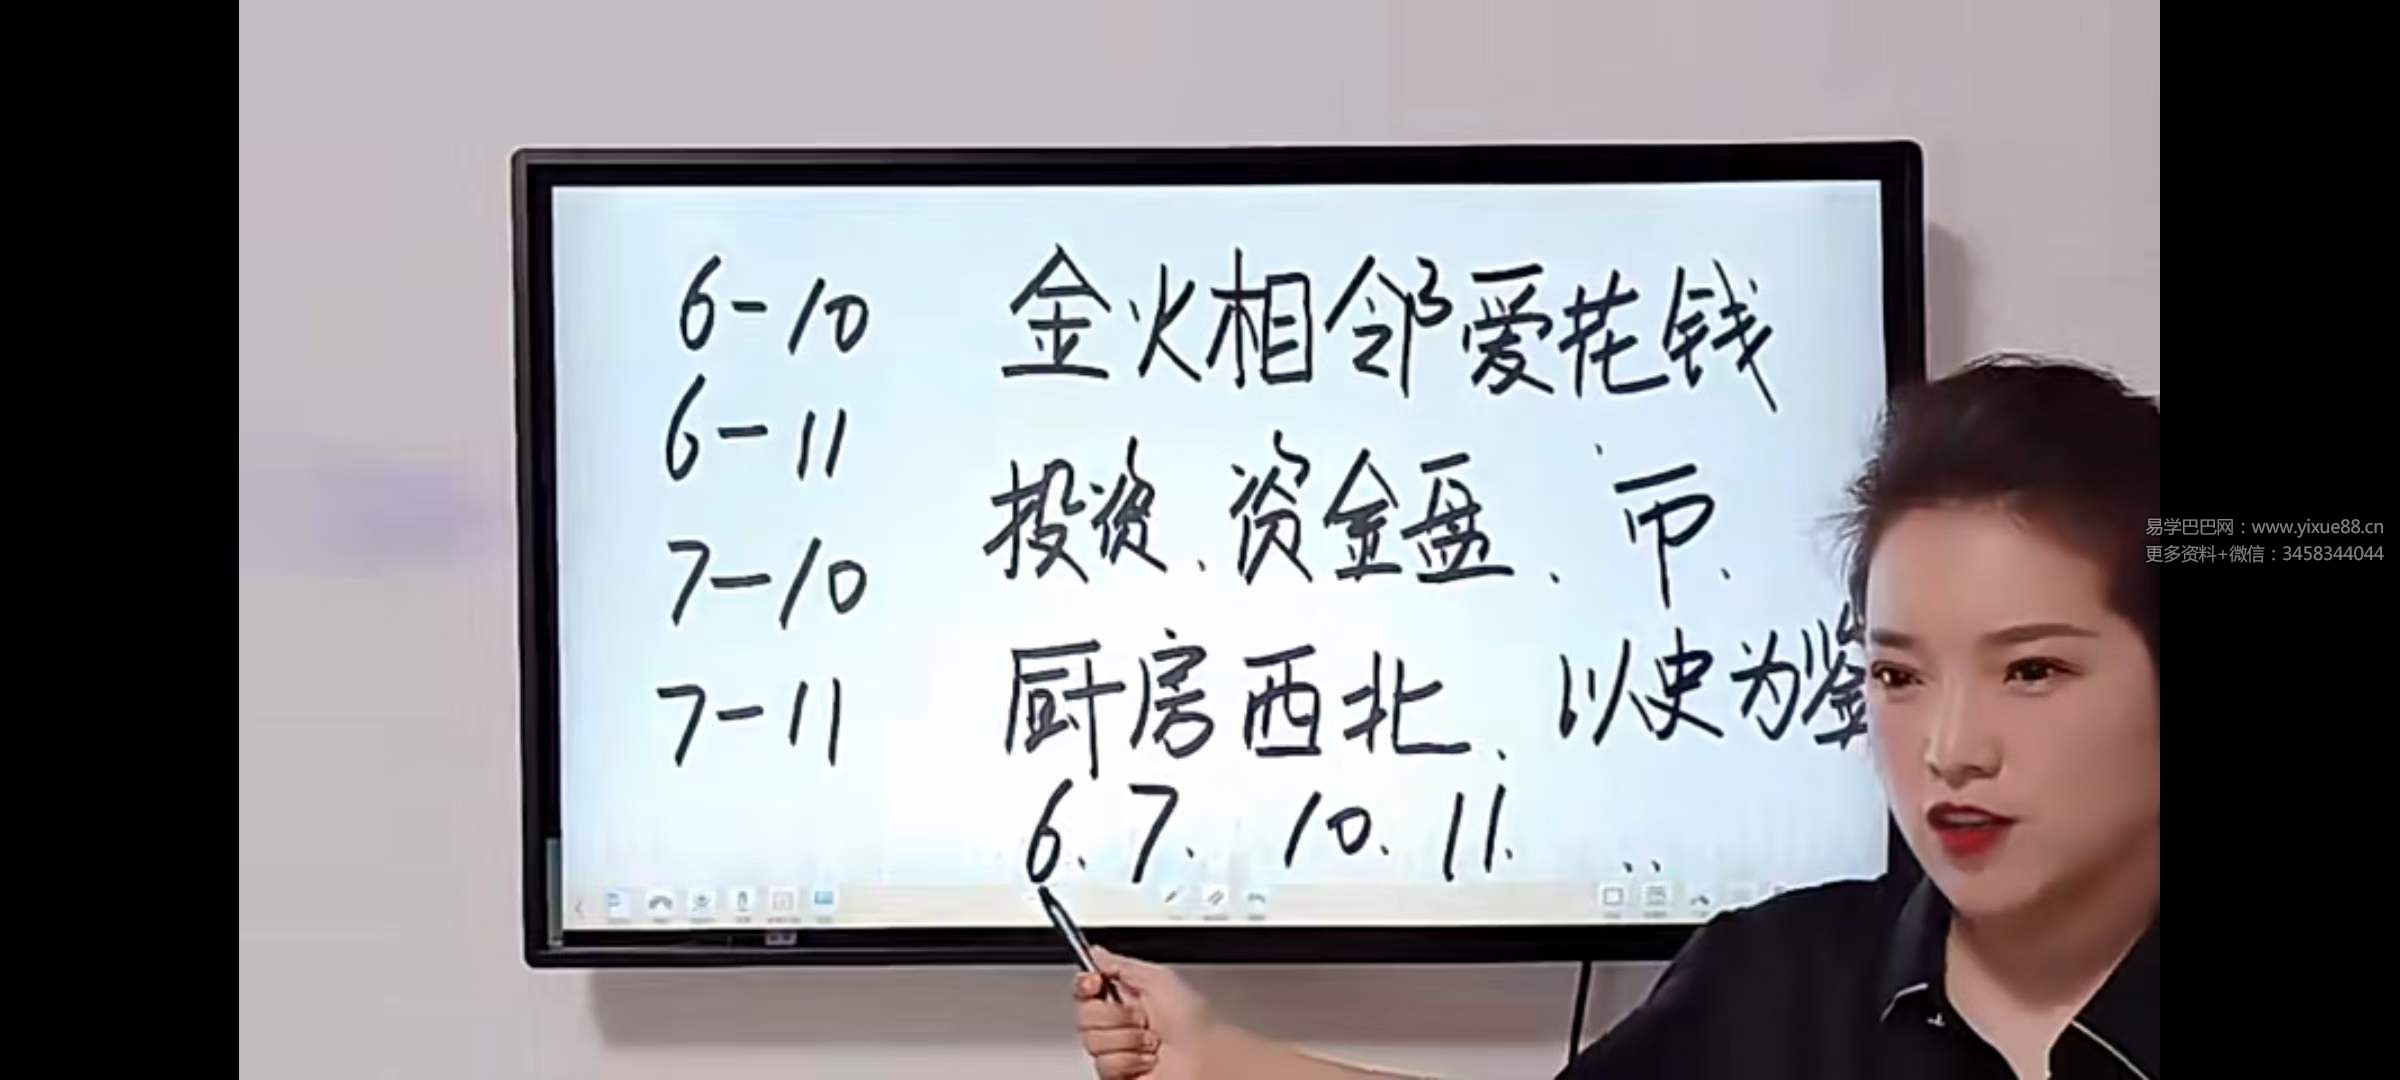 6-10
6-11
7-10
7-11
金火相邻爱花钱
投资、资金盘、币、
厨房西北、以史为鉴
6、7、10、11、
易学巴巴网：www.yixue88.cn
更多资料+微信：3458344044